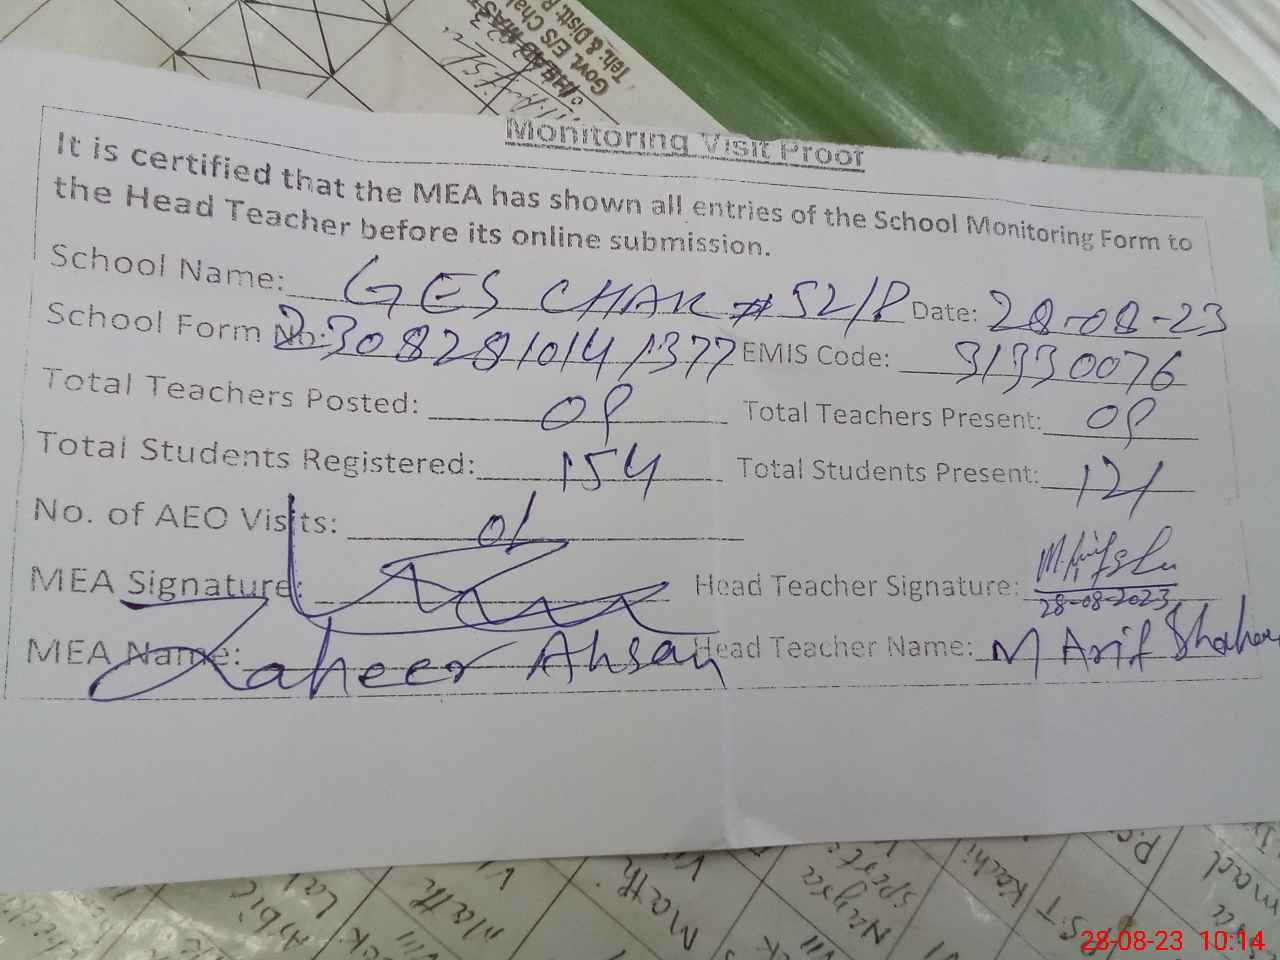 Govt. E/S Chak
Teh: & Distt: R
Monitoring Visit Proof
It is certified that the MEA has shown all entries of the School Monitoring Form to
the Head Teacher before its online submission.
School Name: GES CHAK # 52/P Date: 28-08-23
School Form No: 23082810141377 EMIS Code: 31330076
Total Teachers Posted: 08 Total Teachers Present: 08
Total Students Registered: 154 Total Students Present: 121
No. of AEO Visits: 01
MEA Signature: Head Teacher Signature:
28-08-2023
MEA Name: Zaheer Ahsan Head Teacher Name: M Arif Shaheen
Math
VIII
Math
Kachi
P.S.T
28-08-23 10:14